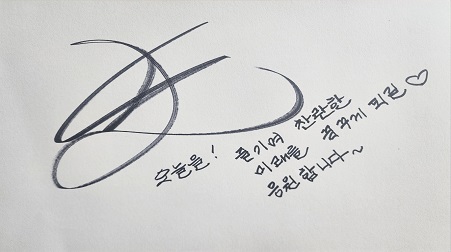 오늘을! 즐기며 찬란한
미래를 꿈꾸게 되길♡
응원합니다~